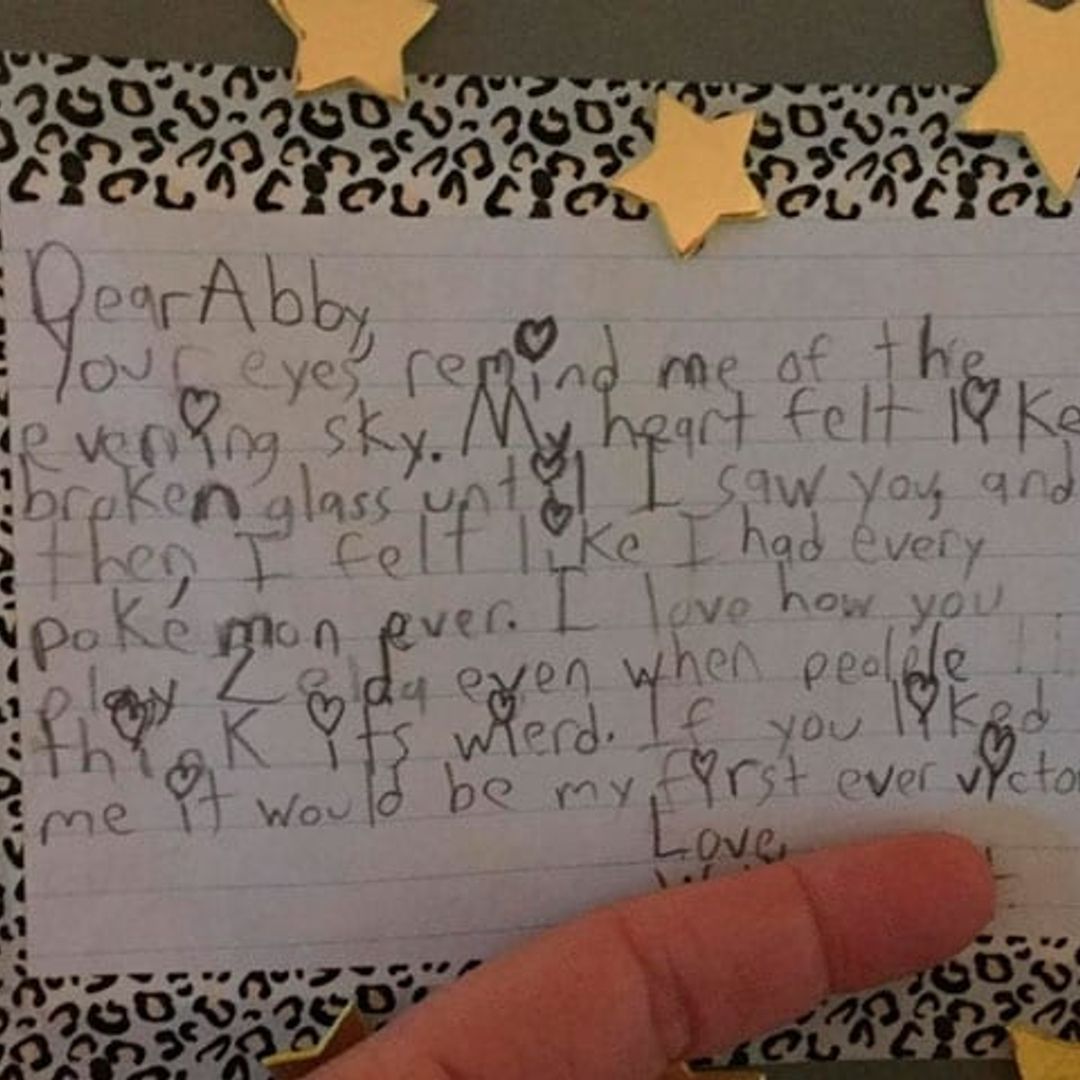 Dear Abby,
Your eyes remind me of the
evening sky. My heart felt like
broken glass until I saw you, and
then, I felt like I had every
pokémon ever. I love how you
play Zelda even when people
think its wierd. If you liked
me it would be my first ever victo
Love,